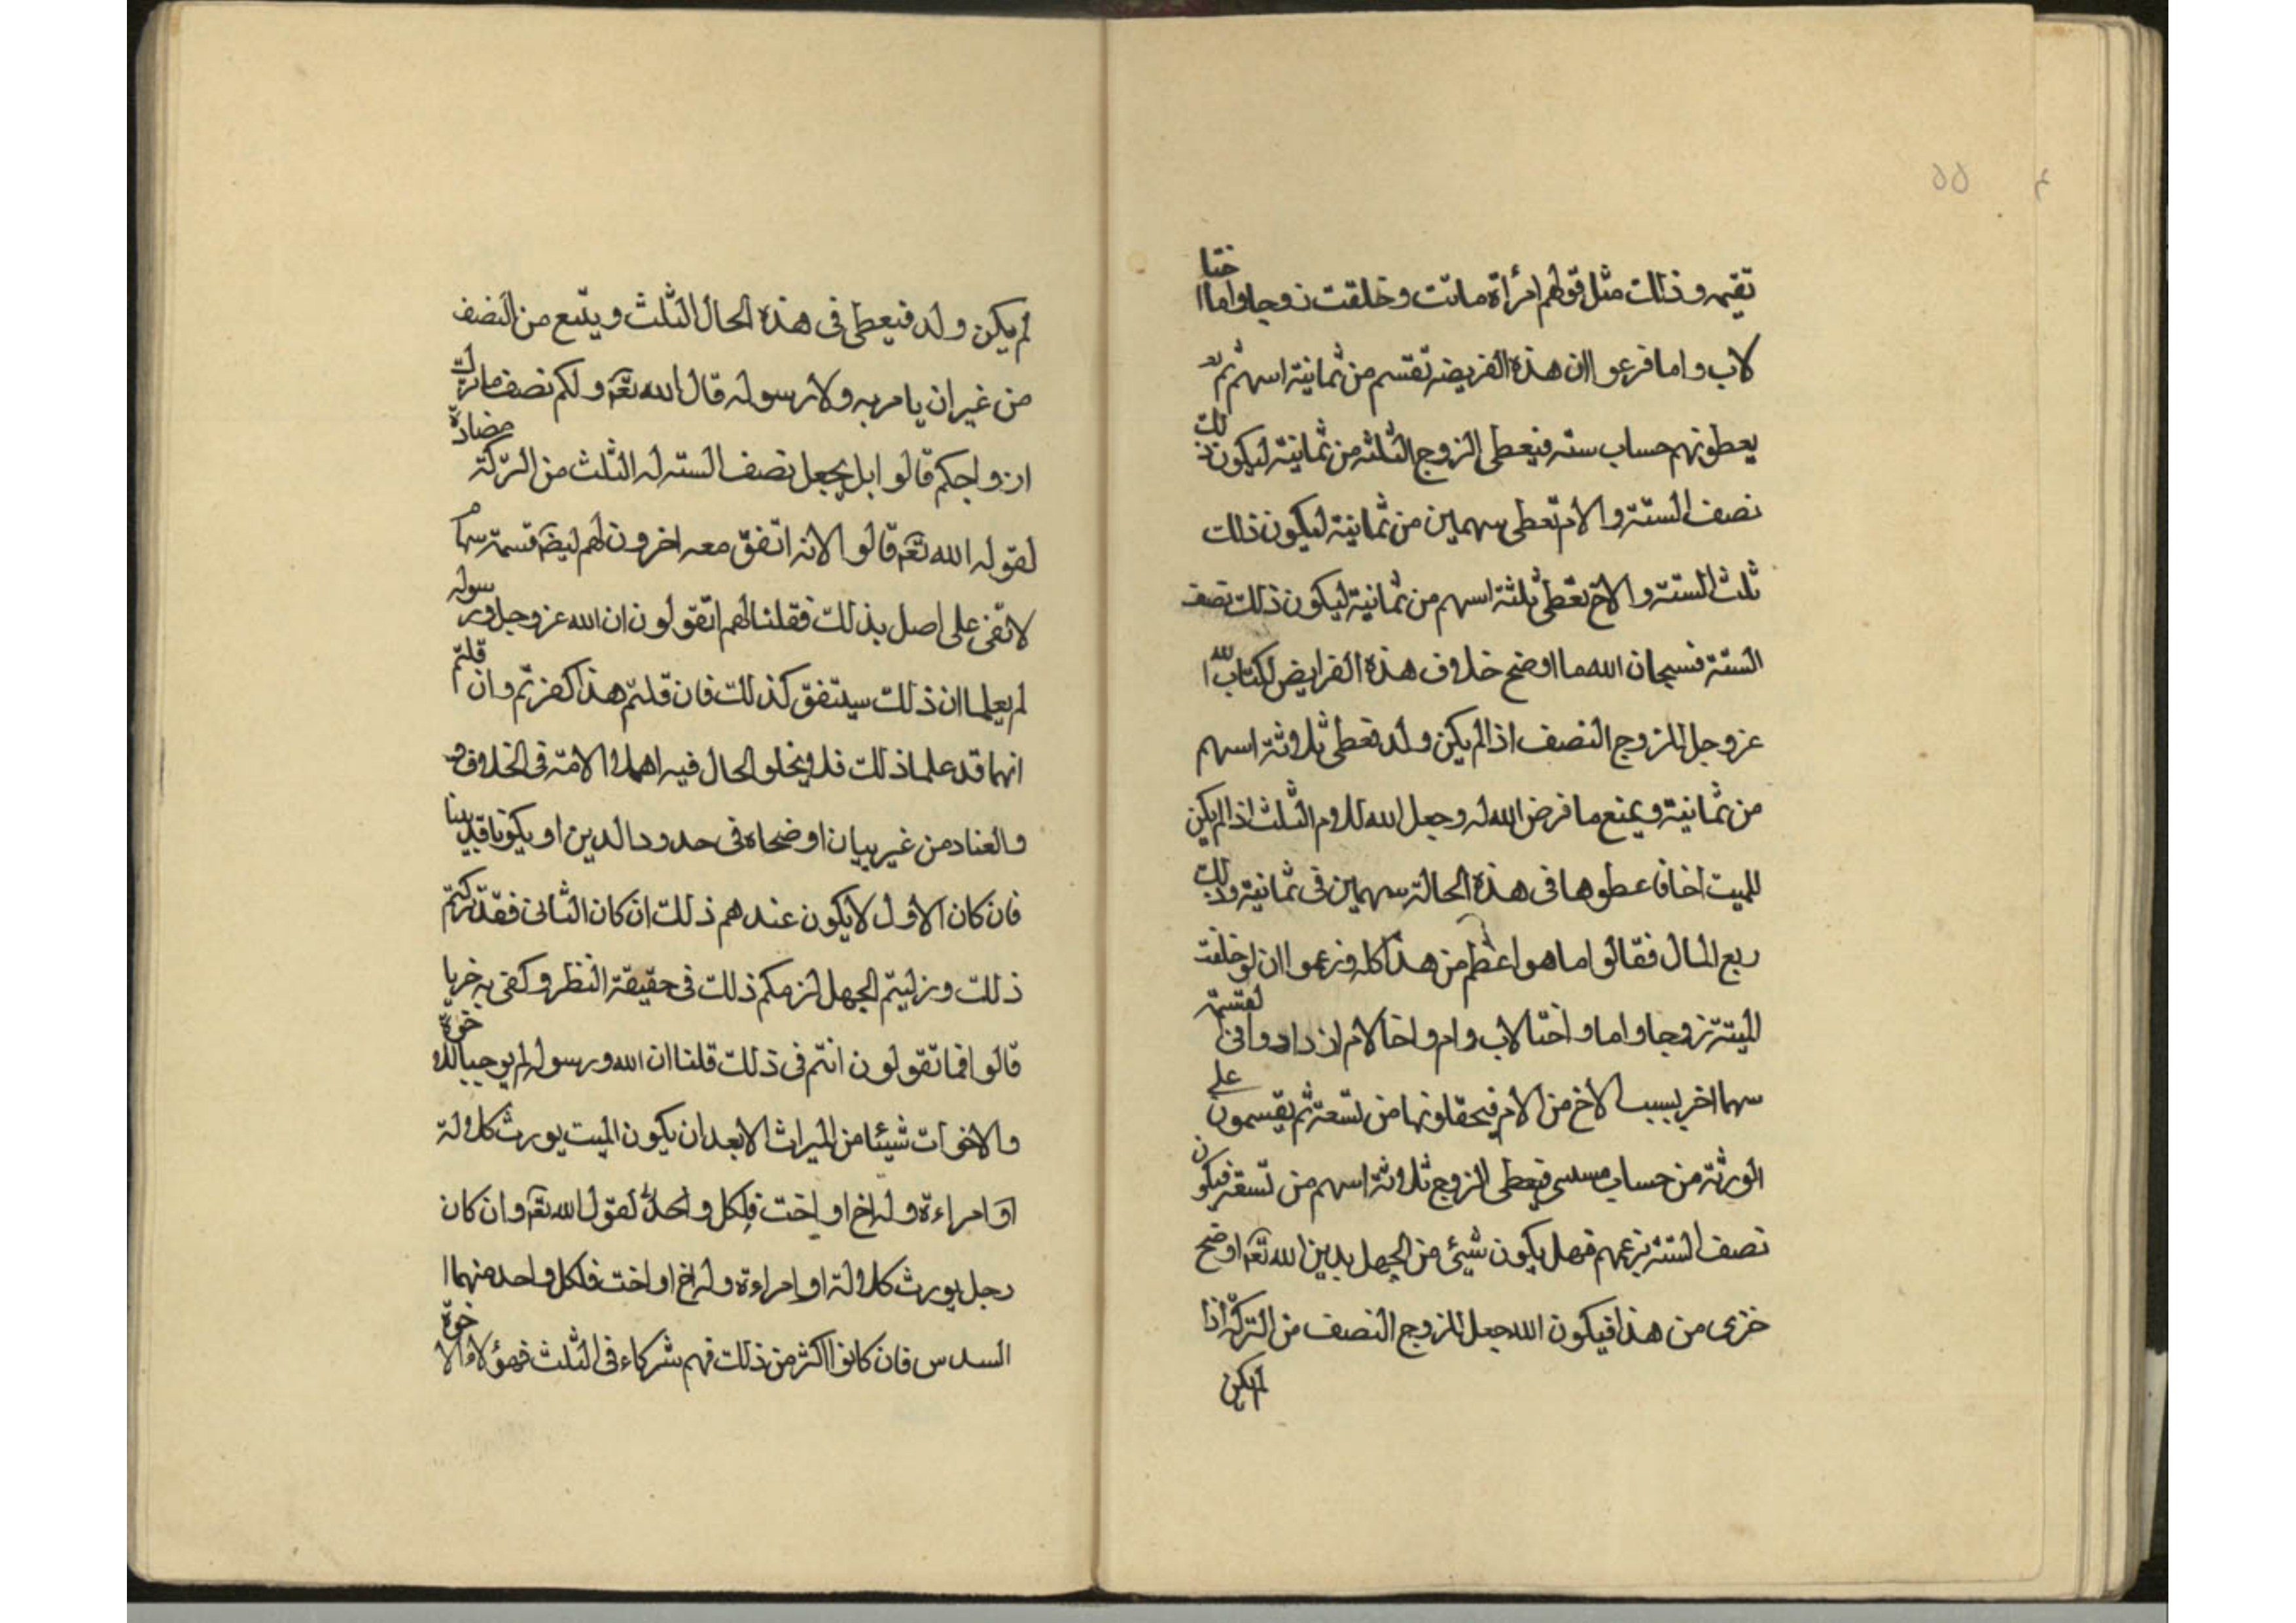 ٥٥
تقيمه وذلك مثل قولهم امرأة ماتت وخلفت زوجا واما واختا
لاب واما فزعموا ان هذه الفريضه تقسم من ثمانية اسهم ثم
يعطونهم حساب سته فيعطى الزوج الثلثه من ثمانية ليكون ذلك
نصف الستة والام تعطى سهمين من ثمانية ليكون ذلك
ثلث الستة والاخ تعطى ثلثة اسهم من ثمانية ليكون ذلك نصف
الستة فسبحان الله ما اوضح خلاف هذه الفرايض لكتاب الله
عزوجل للزوج النصف اذا لم يكن ولد فتعطى ثلاثة اسهم
من ثمانية ويمنع ما فرض الله له وجعل الله للام الثلث اذا لم يكن
للميت اخا فاعطوها فى هذه الحالة سهمين فى ثمانية وذلك
ربع المال فقالوا ما هو اعظم من هذا كله وزعموا ان لو خلفت
الميتة زوجا واما واختا لاب وام واخا لام ان دادوا فى القسمة
سهما اخر بسبب الاخ من الام فيحقلونها من تسعة ثم يقسمون على
الورثة من حساب مسدسى فيعطى الزوج ثلاثة اسهم من تسعة فيكون
نصف الستة بزعمهم فهل يكون شيئ من الجهل بدين الله تعه اوضح
خزى من هذا فيكون الله جعل للزوج النصف من التركة اذا
لم يكن
لم يكن ولد فيعطى فى هذه الحال الثلث ويتبع من النصف
من غير ان يامر به ولا رسوله قال الله تعه ولكم نصف ما ترك
ازواجكم قالوا بل يجعل نصف السته له الثلث من التركة مضادة
لقوله الله تعه قالوا لانه اتفق معه اخرون لهم ليضه قسمة سهام
لا تفى على اصل بذلك فقلنا لهم اتقولون ان الله عزوجل ورسوله
لم يعلما ان ذلك سيتفق كذلك فان قلتم هذا كفرتم وان قلتم
انهما قد علما ذلك فلا يخلو الحال فيه اهملا الامة فى الخلاف و
والعناد من غير بيان اوضحاه فى حدود الدين او يكونا قد بينا
فان كان الاول لا يكون عندهم ذلك ان كان الثانى فقد تركتم
ذلك ونزليتم الجهل لزمكم ذلك فى حقيقة النظر وكفى به خزيا
قالوا فما تقولون انتم فى ذلك قلنا ان الله ورسوله لم يوجبا للاخوة
والاخوات شيئا من الميراث الا بعد ان يكون الميت يورث كلالة
او امراءة وله اخ او اخت فلكل واحد لقول الله تعه وان كان
رجل يورث كلالة او امراءة وله اخ او اخت فلكل واحد منهما ا
السدس فان كانوا اكثر من ذلك فهم شركاء فى الثلث فهؤلاء الاخوة